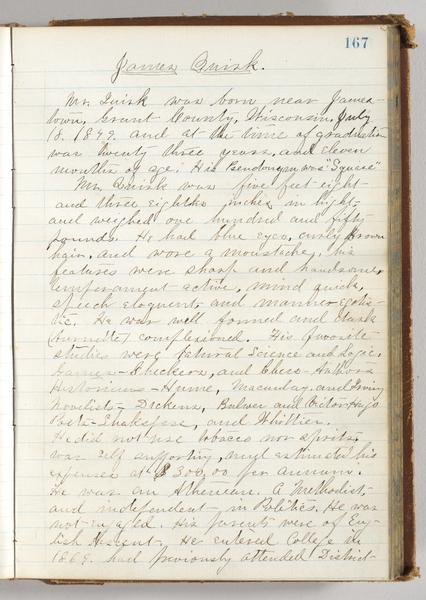 167
James Quirk.
Mr. Quirk was born near James-
town, Grant County, Wisconsin, July
18. 1849. and at the time of graduation
was twenty three years, and eleven
months of age. His was "Squire"
Mr. Quirk was five feet eight
and three eighths inches in hight,
and weighed one hundred and fifty
pounds. He had blue eyes, curly brown
hair, and wore a moustache, his
features were sharp and handsome,
temperament active, mind quick,
speech eloquent, and manner egotis-
tic. He was well formed and dark
(burnette) complexioned. His favorite
studies were Natural Science and Logic.
Games - Checkers, and Chess - Authors
Historians - Hume, Macaulay, and Irving
Novelists - Dickens, Bulwer and Victor Hugo
Poets - Shakspere, and Whittier.
He did not use tobacco nor spirits,
was self supporting, and estimated his
expenses at $300,00 per annum.
He was an Athenian. A Methodist,
and independent in Politics. He was
not engaged. His parents were of Eng-
lish descent. He entered College in
1869. had previously attended District